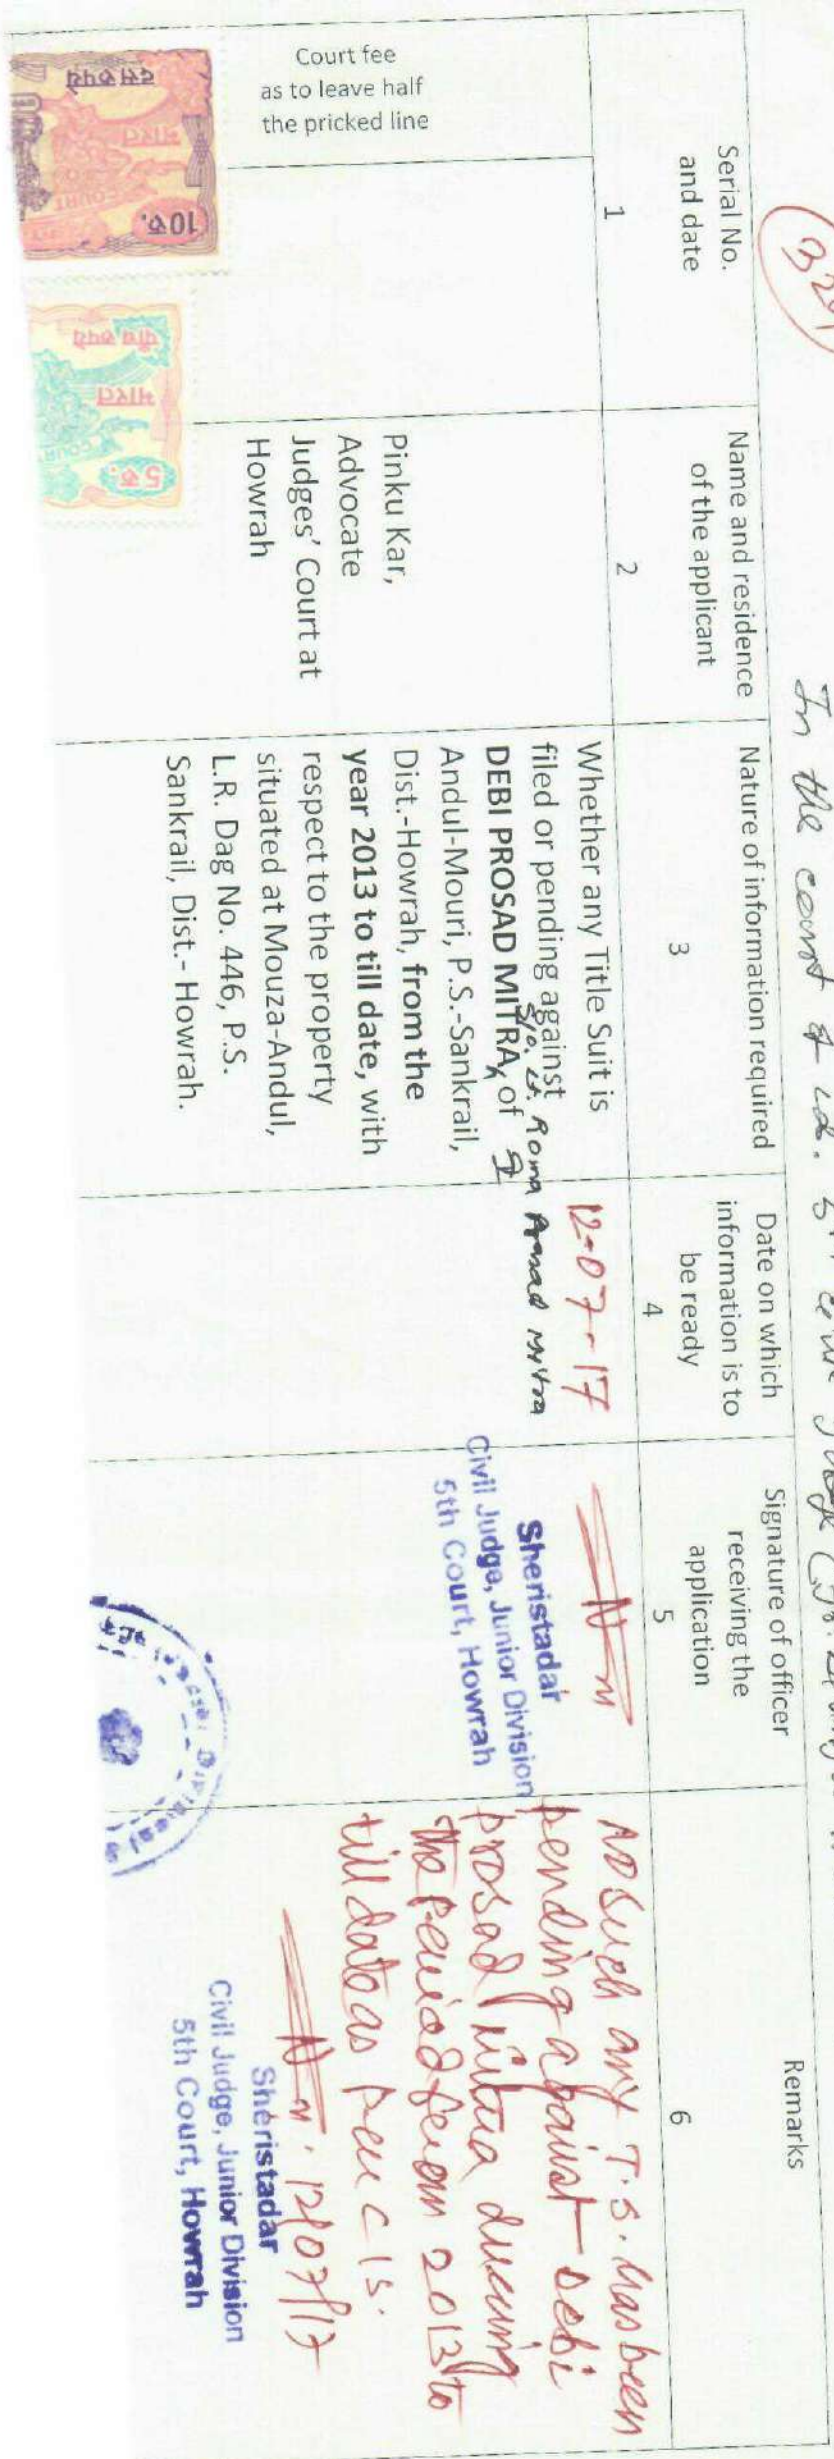 In the court of Ld. 5th Civil Judge (Jr. Divn)
Serial No.
and date
Name and residence
of the applicant
Nature of information required
Date on which
information is to
be ready
Signature of officer
receiving the
application
Remarks
1
2
3
4
5
6
Court fee
as to leave half
the pricked line
दस रुपये
भारत
10 रु.
पाँच रुपये
भारत
5 रु.
Pinku Kar,
Advocate
Judges' Court at
Howrah
Whether any Title Suit is
filed or pending against
S/o. Lt. Roma Prasad Mitra
DEBI PROSAD MITRA, of
Andul-Mouri, P.S.-Sankrail,
Dist.-Howrah, from the
year 2013 to till date, with
respect to the property
situated at Mouza-Andul,
L.R. Dag No. 446, P.S.
Sankrail, Dist.- Howrah.
12-07-17
Sheristadar
Civil Judge, Junior Division
5th Court, Howrah
No such any T.S. has been
pending against Debi
Prosad Mitra during
the period from 2013 to
till date as per CIS.
12/07/17
Sheristadar
Civil Judge, Junior Division
5th Court, Howrah